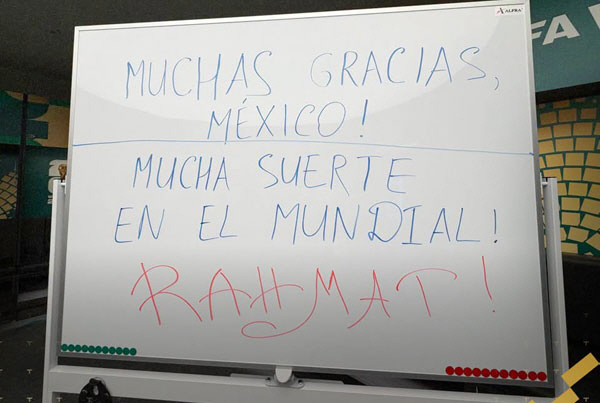 ALFRA
FA
MUCHAS GRACIAS,
MÉXICO!
MUCHA SUERTE
EN EL MUNDIAL!
RAHMAT!